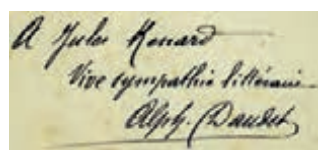 A Jules Renard
Vive sympathie littéraire
Alph. Daudet